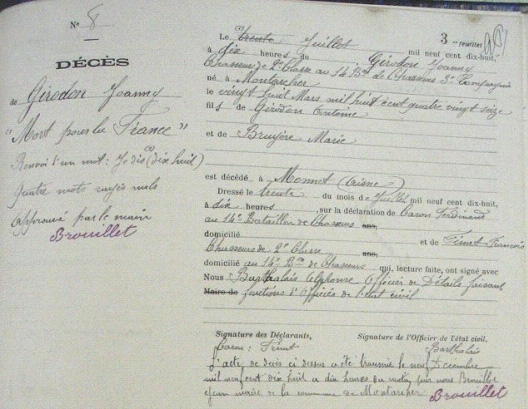 N° 8
DÉCÈS
de Girodon Joanny
"Mort pour la France"
Renvoi d'un mot: Je dis (dix huit)
Quatre mots rayés nuls
Approuvé par le maire
Brouillet
3
Le trente Juillet mil neuf cent dix-huit,
à dix heures du Girodon Joanny
Chasseur de 2e Classe au 14 Bon de Chasseurs 3e Compagnie
né à Montarcher
le vingt huit Mars mil huit cent quatre vingt seize
fils de Girodon Antoine
et de Bruyère Marie
est décédé à Monnet (Aisne)
Dressé le trente du mois de Juillet mil neuf cent dix-huit,
à dix heures, sur la déclaration de Caron Ferdinand
au 14e Bataillon de Chasseurs ans,
domicilié et de François
Chasseurs de 2e Classe ans,
domicilié au 14e Bon de Chasseurs qui, lecture faite, ont signé avec
Nous Alphonse Officier de Détails faisant
Maire de fonctions d'Officier de l'état civil
Signature des Déclarants, Signature de l'Officier de l'état civil,
Caron
L'acte de décès ci dessus a été transcrit le neuf Décembre
mil neuf cent dix huit a dix heures du matin par nous Brouillet
Jean maire de la commune de Montarcher Brouillet